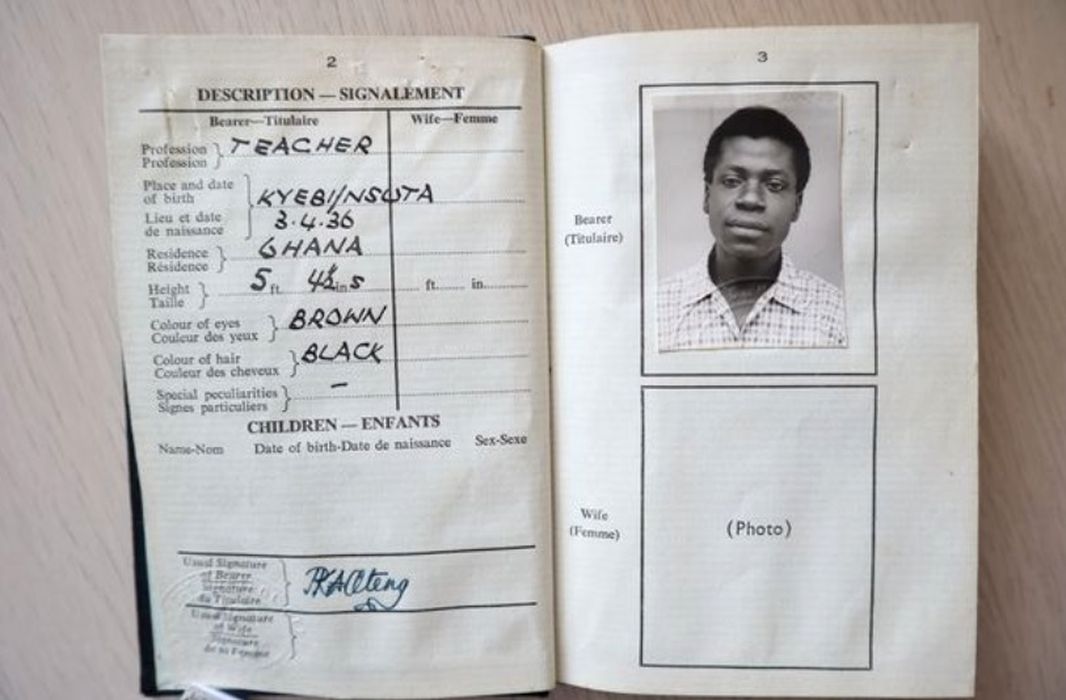 2
DESCRIPTION — SIGNALEMENT
Bearer—Titulaire Wife—Femme
Profession
Profession } TEACHER
Place and date
of birth
Lieu et date
de naissance } KYEBI/NSUTA
3.4.36
Residence
Résidence } GHANA
Height
Taille } 5 ft. 4½ ins ft. in.
Colour of eyes
Couleur des yeux } BROWN
Colour of hair
Couleur des cheveux } BLACK
Special peculiarities
Signes particuliers } –
CHILDREN — ENFANTS
Name-Nom Date of birth-Date de naissance Sex-Sexe
Usual Signature
of Bearer
Signature
du Titulaire
Usual Signature
of Wife
Signature
de sa Femme
3
Bearer
(Titulaire)
Wife
(Femme)
(Photo)